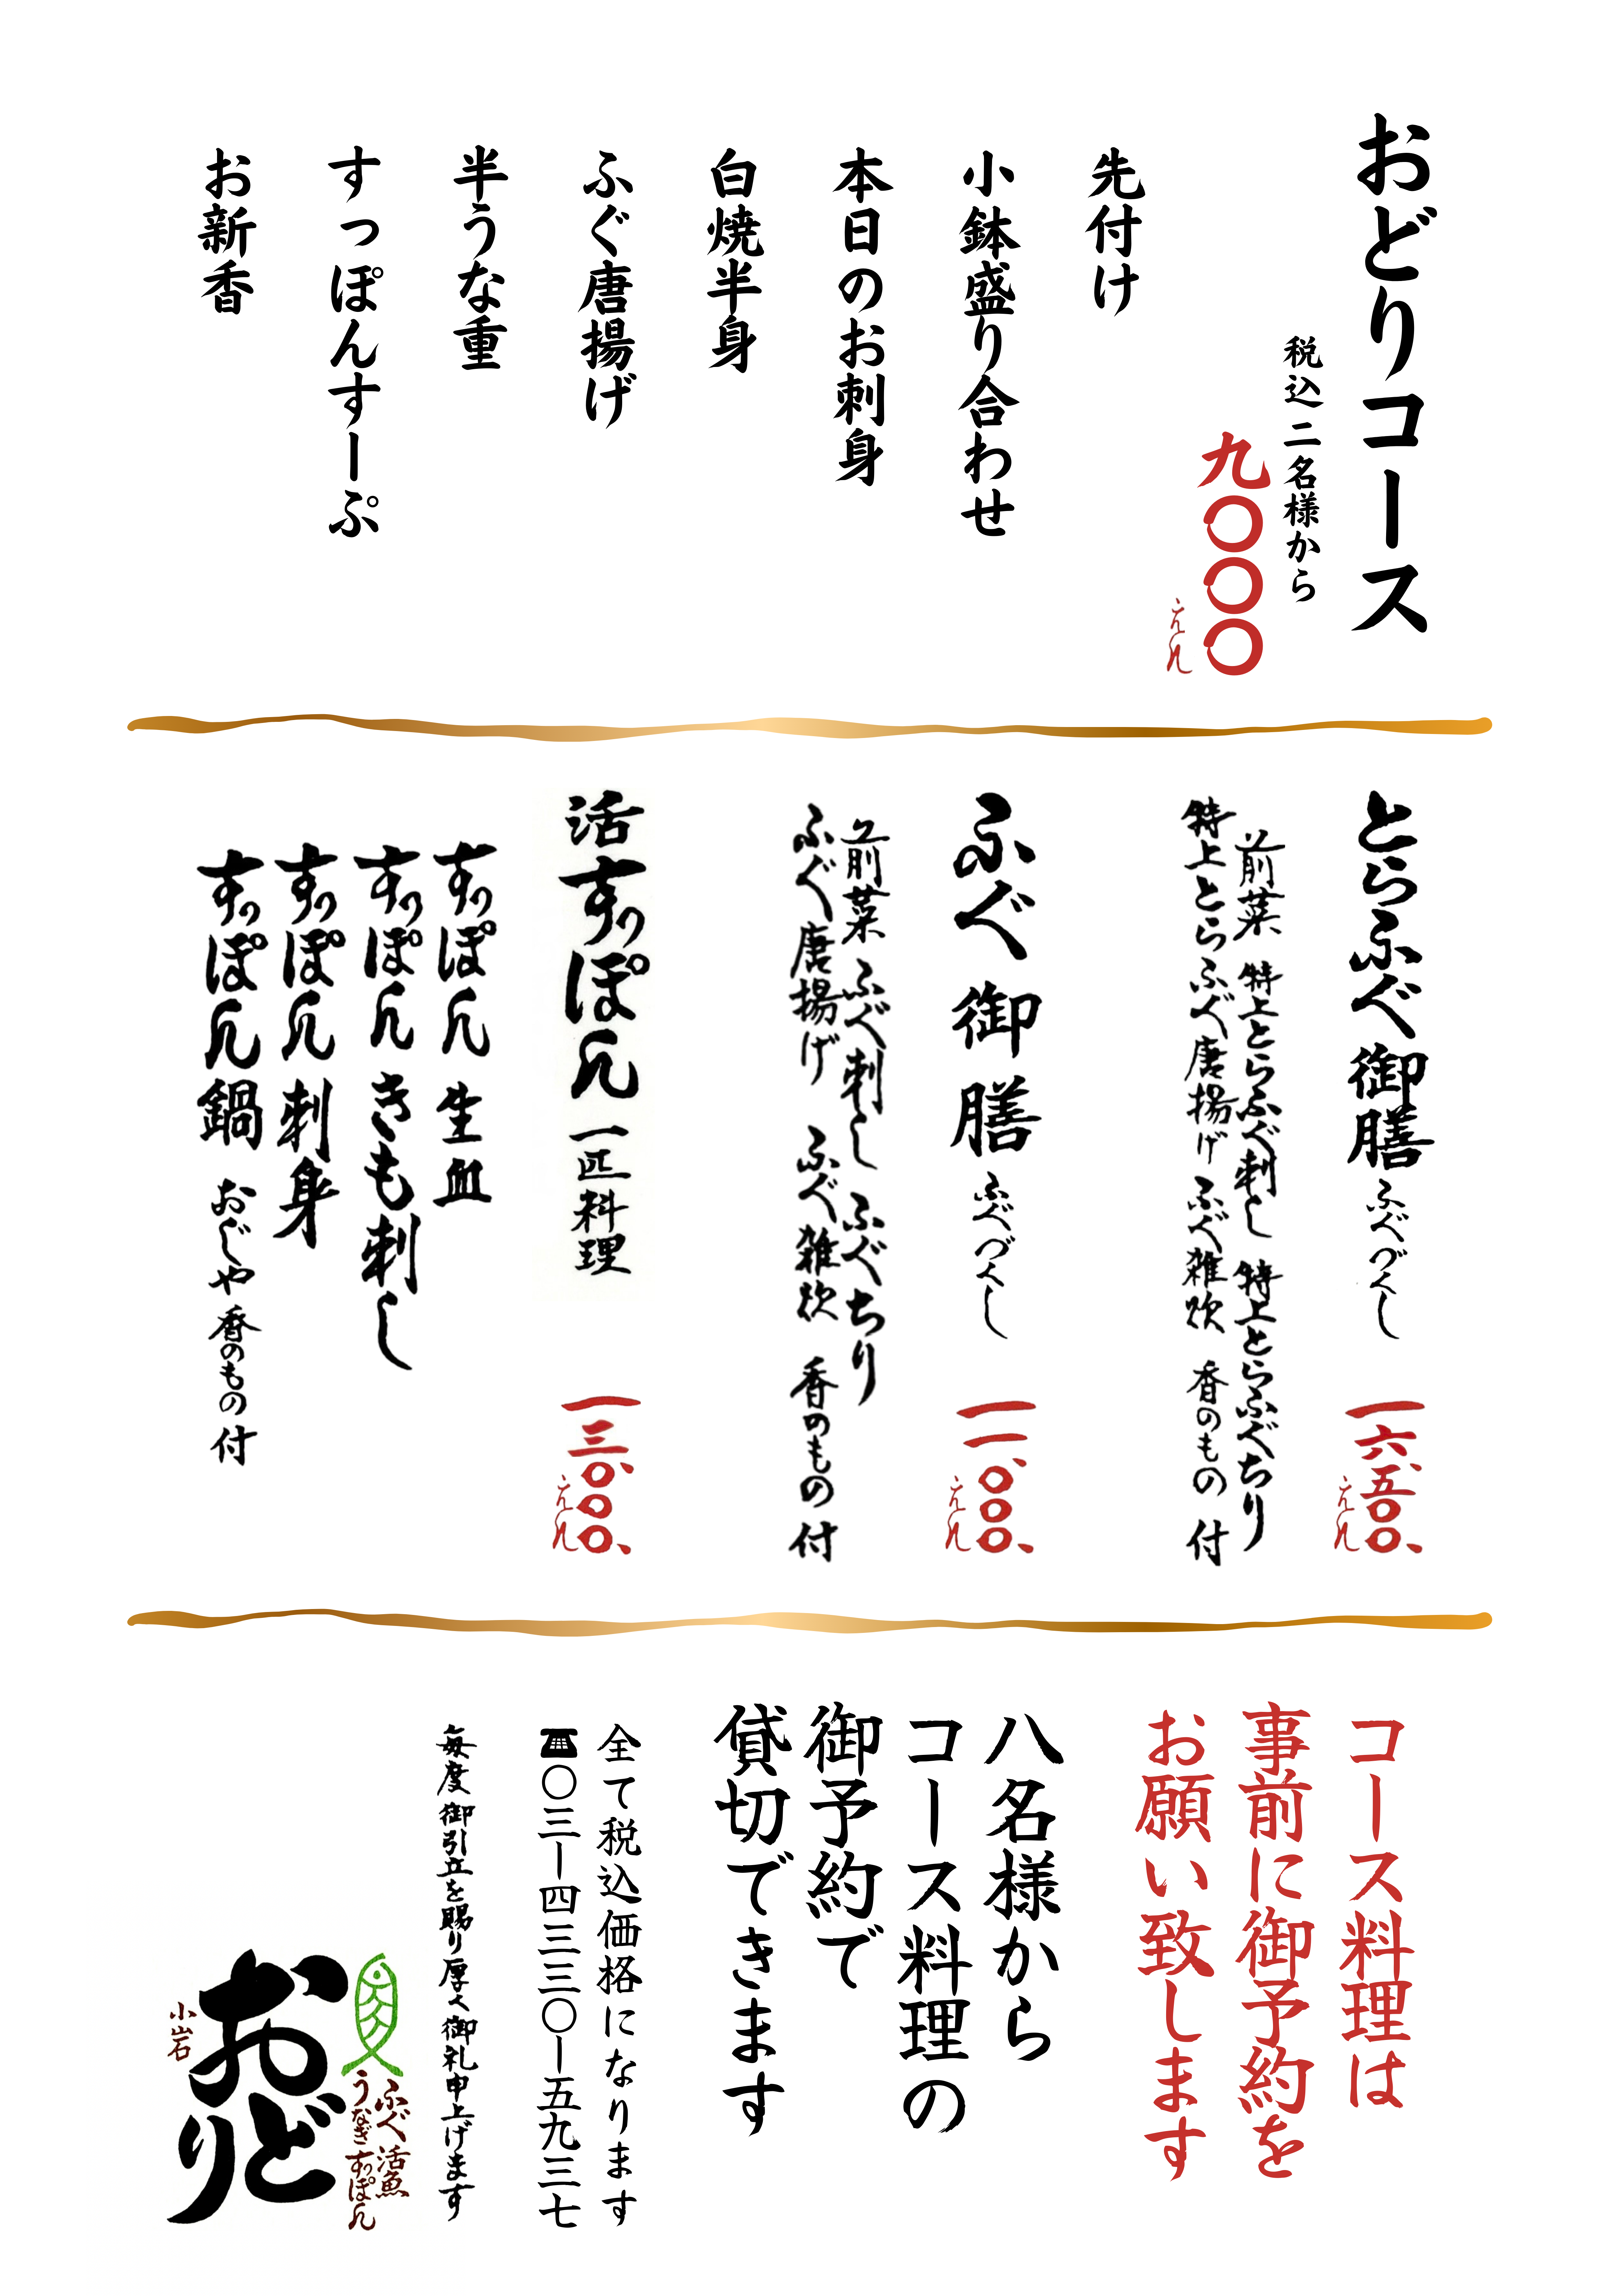 おどりコース
税込 二名様から
九〇〇〇
えん
先付け
小鉢盛り合わせ
本日のお刺身
白焼半身
ふぐ唐揚げ
半うな重
すっぽんすーぷ
お新香
とらふぐ御膳 ふぐづくし
一六、五〇〇、
えん
前菜 特上とらふぐ刺し 特上とらふぐちり
特上とらふぐ唐揚げ ふぐ雑炊 香のもの 付
ふぐ御膳 ふぐづくし
一一、〇〇〇、
えん
前菜 ふぐ刺し ふぐちり
ふぐ唐揚げ ふぐ雑炊 香のもの 付
活すっぽん 一匹料理
一三、〇〇〇、
えん
すっぽん生血
すっぽんきも刺し
すっぽん刺身
すっぽん鍋 おじや 香のもの 付
コース料理は
事前に御予約を
お願い致します
八名様から
コース料理の
御予約で
貸切できます
全て税込価格になります
☎〇三ー四三三〇ー五九三七
毎度御引立を賜り厚く御礼申上げます
ふぐ 活魚
うなぎ すっぽん
おどり
小岩